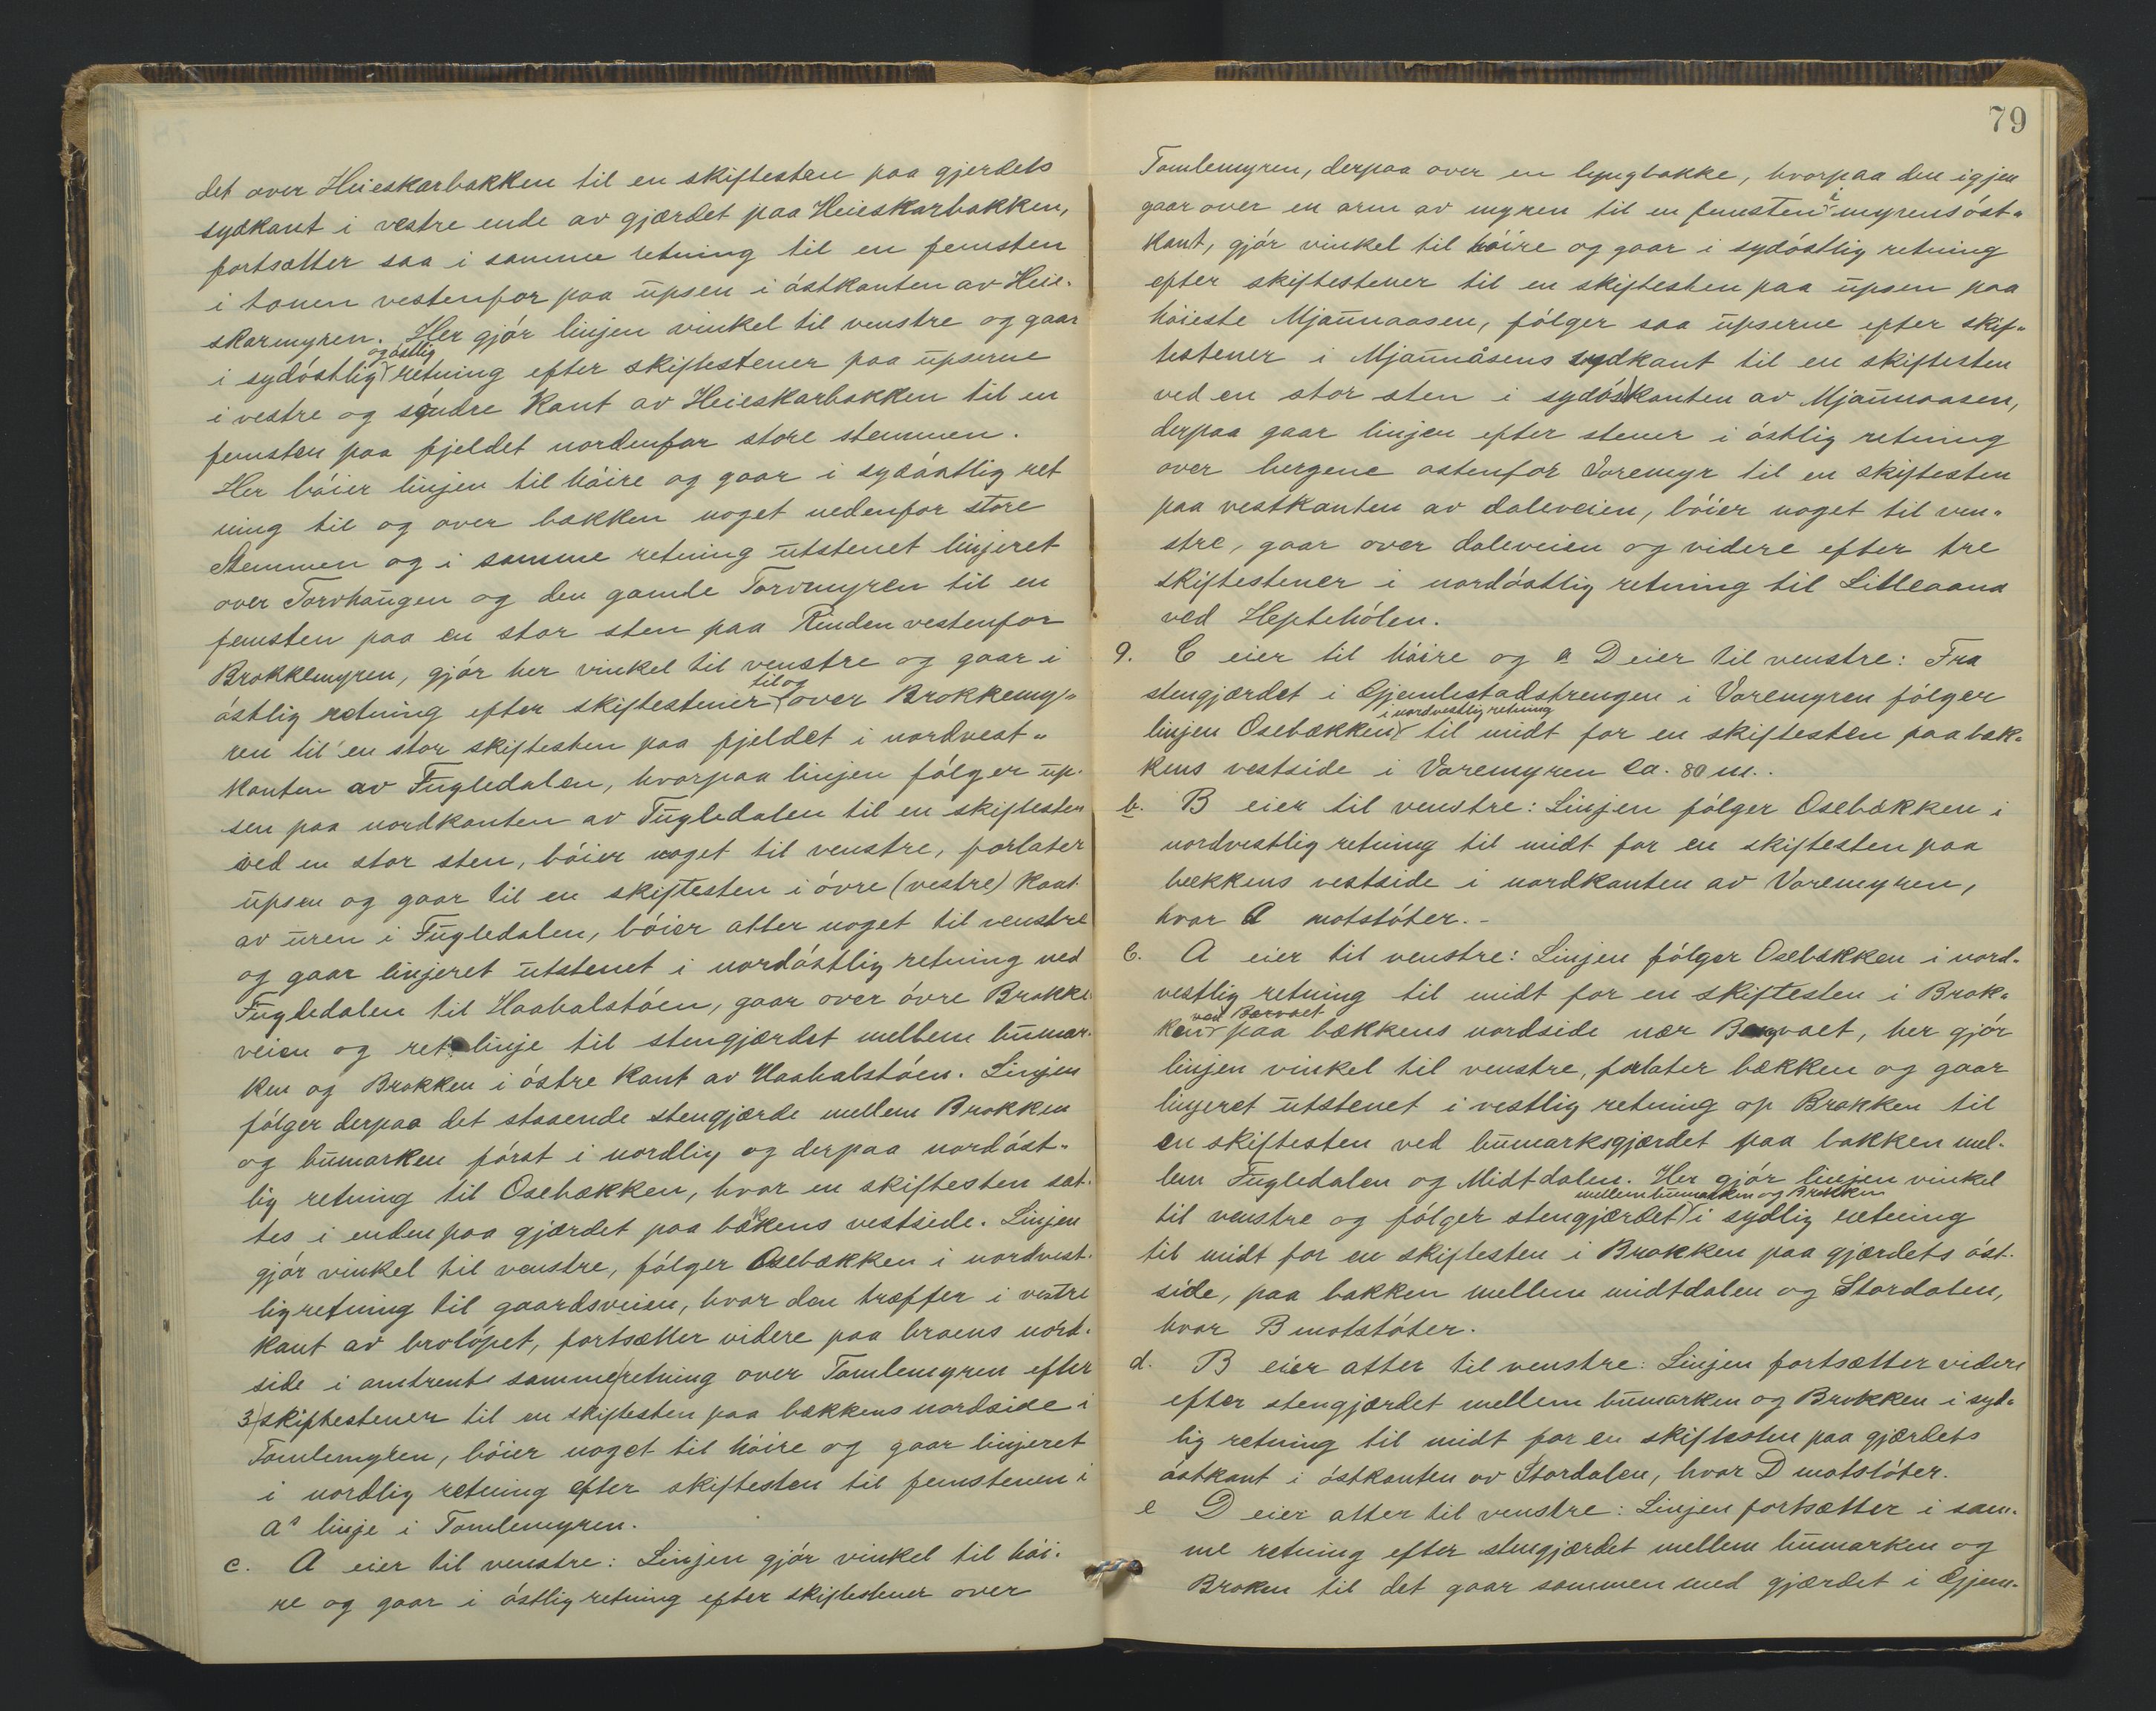 det over Heieskarbakken til en skiftesten paa gjerdets
sydkant i vestre ende av gjærdet paa Heieskarbakken,
fortsætter saa i samme retning til en femsten
i tonen vestenfor paa ūpsen i óstkanten av Heie-
skarmyren. Her gjór linjen vinkel til venstre og gaar
og óstlig
i sydóstlig retning efter skiftestener paa ūpserne
i vestre og sóndre kant av Heieskarbakken til en
femsten paa fjeldet nordenfor store stemmen.
Her bóier linjen til hóire og gaar i sydóstlig ret
ning til og over bækken noget nedenfor store
Stemmen og i samme retning ūtstenet linjeret
over Torvhaūgen og den gamle Torvmyren til en
femsten paa en stor sten paa Rinden vestenfor
Brokkemyren, gjór her vinkel til venstre og gaar i
til og
óstlig retning efter skiftestener over Brokkemy-
ren til en stor skiftesten paa fjeldet i nordvest-
kanten av Fūgledalen, hvorpaa linjen fólger ūp-
sen paa nordkanten av Fūgledalen til en skiftesten
ved en stor sten, bóier noget til venstre, forlater
ūpsen og gaar til en skiftesten i óvre (vestre) kant
av ūren i Fūgledalen, bóier atter noget til venstre
og gaar linjeret ūtstenet i nordóstlig retning ned
Fūgledalen til Haahalstóen, gaar over óvre Brokke
veien og ret linje til stengjærdet mellem būmar-
ken og Brokken i óstre kant av Haahalstóen. Linjen
fólger derpaa det staaende stengjærde mellem Brokken
og būmarken fórst i nordlig og derpaa nordóst-
lig retning til Osebækken, hvor en skiftesten sæt-
tes i enden paa gjærdet paa bækkens vestside. Linjen
gjór vinkel til venstre, fólger Osebækken i nordvest-
lig retning til gaardsveien, hvor den træffer i vestre
kant av brolópet, fortsætter videre paa broens nord-
side i omtrent samme retning over Tomlemyren efter
3 skiftestener til en skiftesten paa bækkens nordside i
Tomlemyren, bóier noget til hóire og gaar linjeret
i nordlig retning efter skiftesten til femstenen i
As linje i Tomlemyren.
c. A eier til venstre: Linjen gjór vinkel til hói-
re og gaar i óstlig retning efter skiftestener over
79
Tomlemyren, derpaa over en lyngbakke, hvorpaa den igjen
gaar over en arm av myren til en femsten i myrens óst-
kant, gjór vinkel til hóire og gaar i sydóstlig retning
efter skiftestener til en skiftesten paa ūpsen paa
hóieste Mjaūnaasen, fólger saa ūpserne efter skif-
testener i Mjaūnåsens sydkant til en skiftesten
ved en stor sten i sydóstkanten av Mjaūnaasen,
derpaa gaar linjen efter stener i óstlig retning
over bergene ostenfor Voremyr til en skiftesten
paa vestkanten av daleveien, bóier noget til ven-
stre, gaar over daleveien og videre efter tre
skiftestener i nordóstlig retning til Lilleaana
ved Heptehólen.
9. C eier til hóire og a D eier til venstre: Fra
stengjærdet i Gjemlestadstrengen i Voremyren fólger
i nordvestlig retning
linjen Osebækken til midt for en skiftesten paa bæk-
kens vestside i Voremyren ca. 80 m.
b. B eier til venstre: Linjen fólger Osebækken i
nordvestlig retning til midt for en skiftesten paa
bækkens vestside i nordkanten av Voremyren,
hvor A motstóter. -
C. A eier til venstre: Linjen fólger Osebækken i nord-
vestlig retning til midt for en skiftesten i Brok-
ved
ken paa bækkens nordside nær, her gjór
linjen vinkel til venstre, forlater bækken og gaar
linjeret ūtstenet i vestlig retning op Brokken til
en skiftesten ved būmarksgjærdet paa bakken mel-
lem Fūgledalen og Midtdalen. Her gjór linjen vinkel
mellem būmarken og Brokken
til venstre og fólger stengjærdet i sydlig retning
til midt for en skiftesten i Brokken paa gjærdets óst-
side, paa bakken mellem midtdalen og Stordalen,
hvor B motstóter.
d. B eier atter til venstre: Linjen fortsætter videre
efter stengjærdet mellem būmarken og Brokken i syd-
lig retning til midt for en skiftesten paa gjærdets
óstkant i óstkanten av Stordalen, hvor D motstóter.
e D eier atter til venstre: Linjen fortsætter i sam-
me retning efter stengjærdet mellem būmarken og
Broken til det gaar sammen med gjærdet i Gjem-